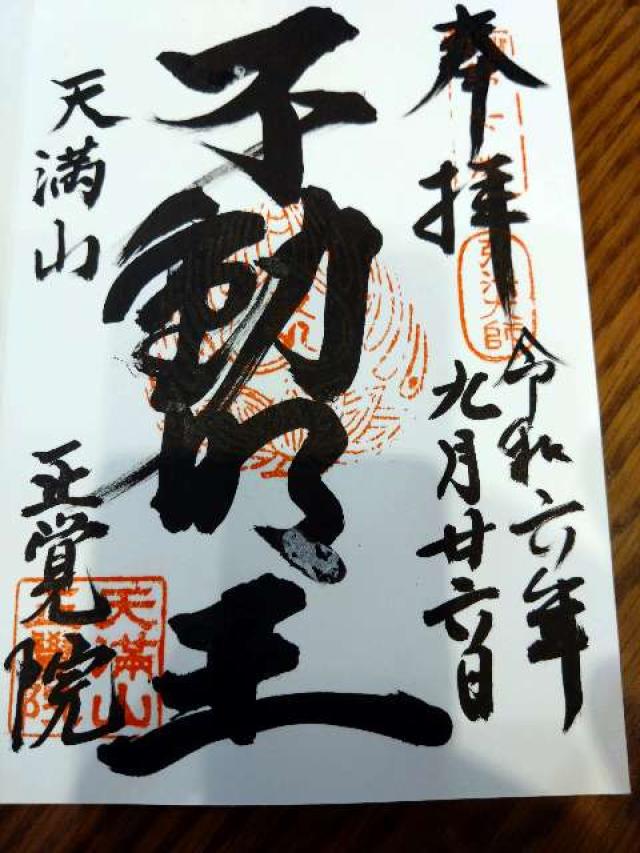 奉拝
令和六年
九月廿六日
不動明王
天満山
正覚院
弘法大師
天満山
正覺院